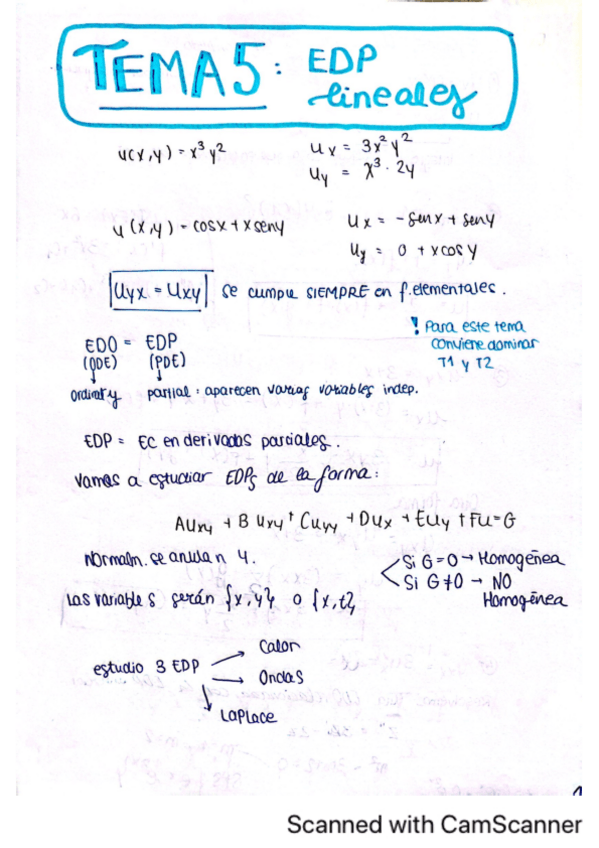 TEMA 5: EDP
lineales
u(x,y) = x³y²
Ux = 3x²y²
Uy = x³·2y
u(x,y) = cosx + xseny
Ux = -senx + seny
Uy = 0 + xcosy
Uyx = Uxy se cumple SIEMPRE en f.elementales.
! Para este tema
conviene dominar
T1 y T2
EDO = EDP
(ODE) (PDE)
ordinary partial: aparecen varias variables indep.
EDP = EC en derivadas parciales.
Vamos a estudiar EDPs de la forma:
AUxy + BUxy + CUyy + DUx + EUy + Fu=G
Normalm. se anulan 4.
Si G=0 → Homogénea
Si G≠0 → NO
Homogénea
Las variables serán {x,y} o {x,t}
estudio 3 EDP
Calor
Ondas
Laplace
1
Scanned with CamScanner